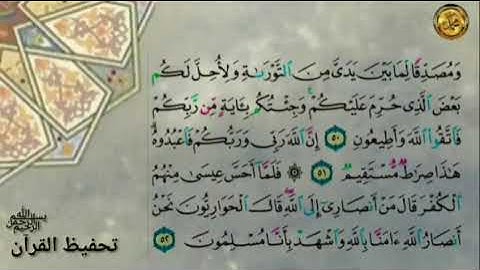 وَمُصَدِّقًا لِّمَا بَيْنَ يَدَيَّ مِنَ التَّوْرَىٰةِ وَلِأُحِلَّ لَكُم
بَعْضَ الَّذِى حُرِّمَ عَلَيْكُمْ ۚ وَجِئْتُكُم بِـَٔايَةٍ مِّن رَّبِّكُمْ
فَاتَّقُوا اللَّهَ وَأَطِيعُونِ ٥٠ إِنَّ اللَّهَ رَبِّى وَرَبُّكُمْ فَاعْبُدُوهُ
هَٰذَا صِرَٰطٌ مُّسْتَقِيمٌ ٥١ ۞ فَلَمَّا أَحَسَّ عِيسَىٰ مِنْهُمُ
الْكُفْرَ قَالَ مَنْ أَنصَارِى إِلَى اللَّهِ ۖ قَالَ الْحَوَارِيُّونَ نَحْنُ
أَنصَارُ اللَّهِ ءَامَنَّا بِاللَّهِ وَاشْهَدْ بِأَنَّا مُسْلِمُونَ ٥٢
بسم الله الرحمن الرحيم
تحفيظ القرآن